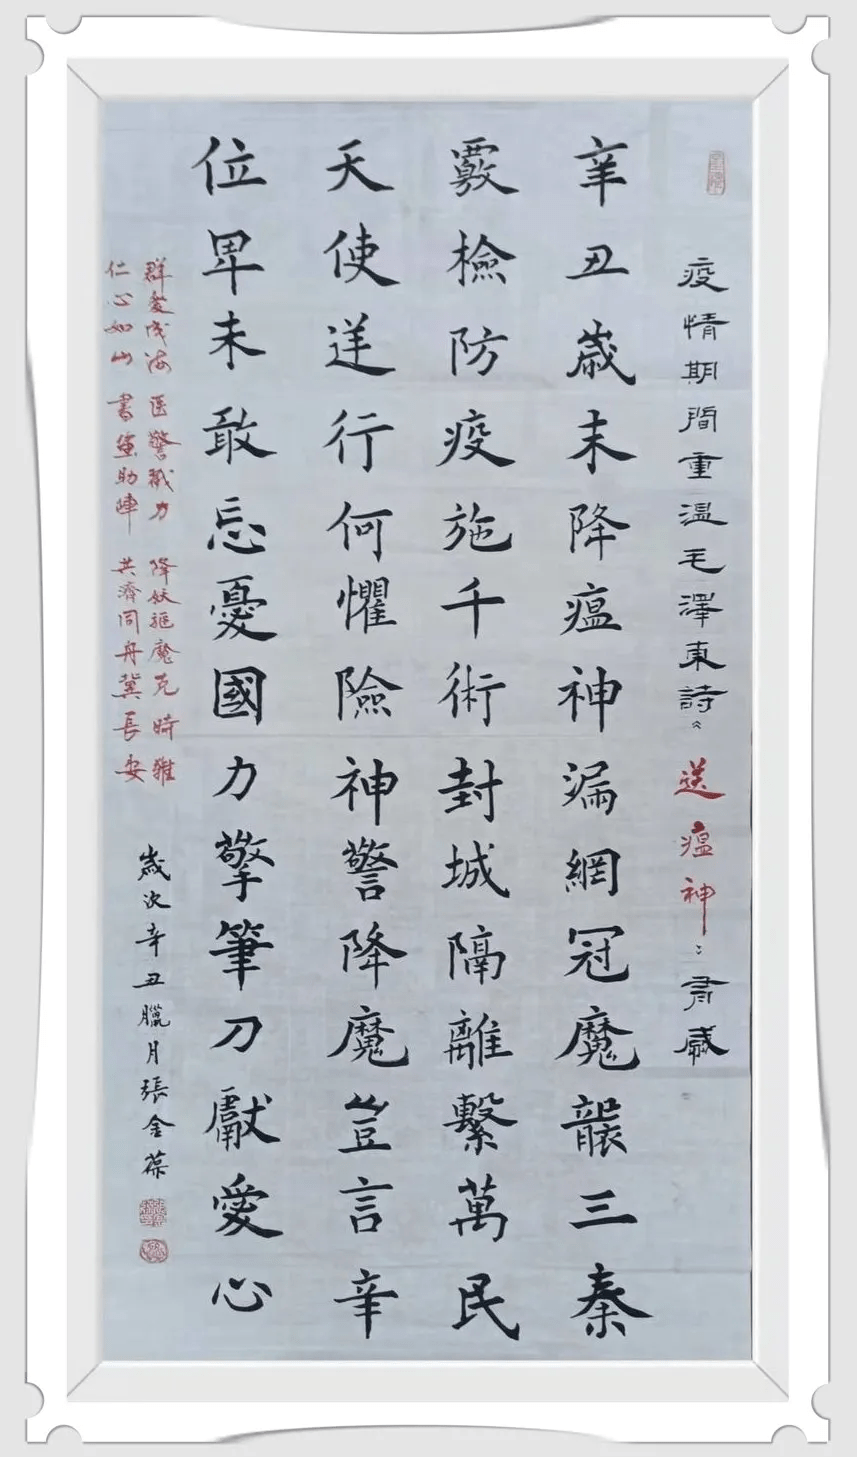 疫情期間重温毛澤東詩《送瘟神》有感
辛丑歲末降瘟神漏網冠魔襲三秦
覈檢防疫施千術封城隔離繫萬民
天使逆行何懼險神警降魔豈言辛
位卑未敢忘憂國力擎筆刀獻愛心
群愛成海 医警戮力 降妖驅魔克時難
仁心如山 書畫助陣 共濟同舟冀長安
歲次辛丑臘月張金葆